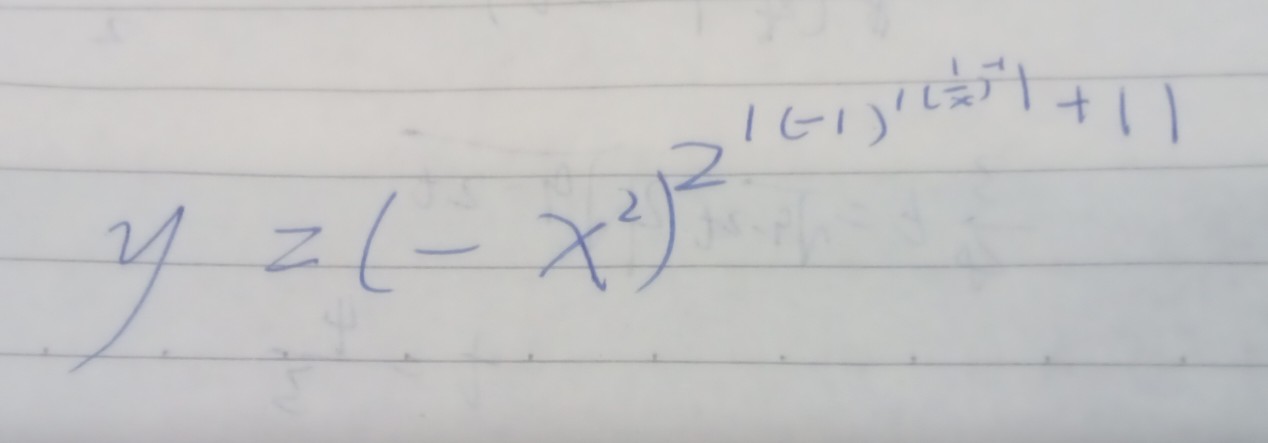 y = (-x²)^2^|(-1)^|(1/x)^-1|+1|